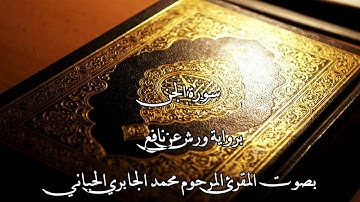 سورة الجن
برواية ورش عن نافع
بصوت المقرئ المرحوم محمد الجابري الحياني